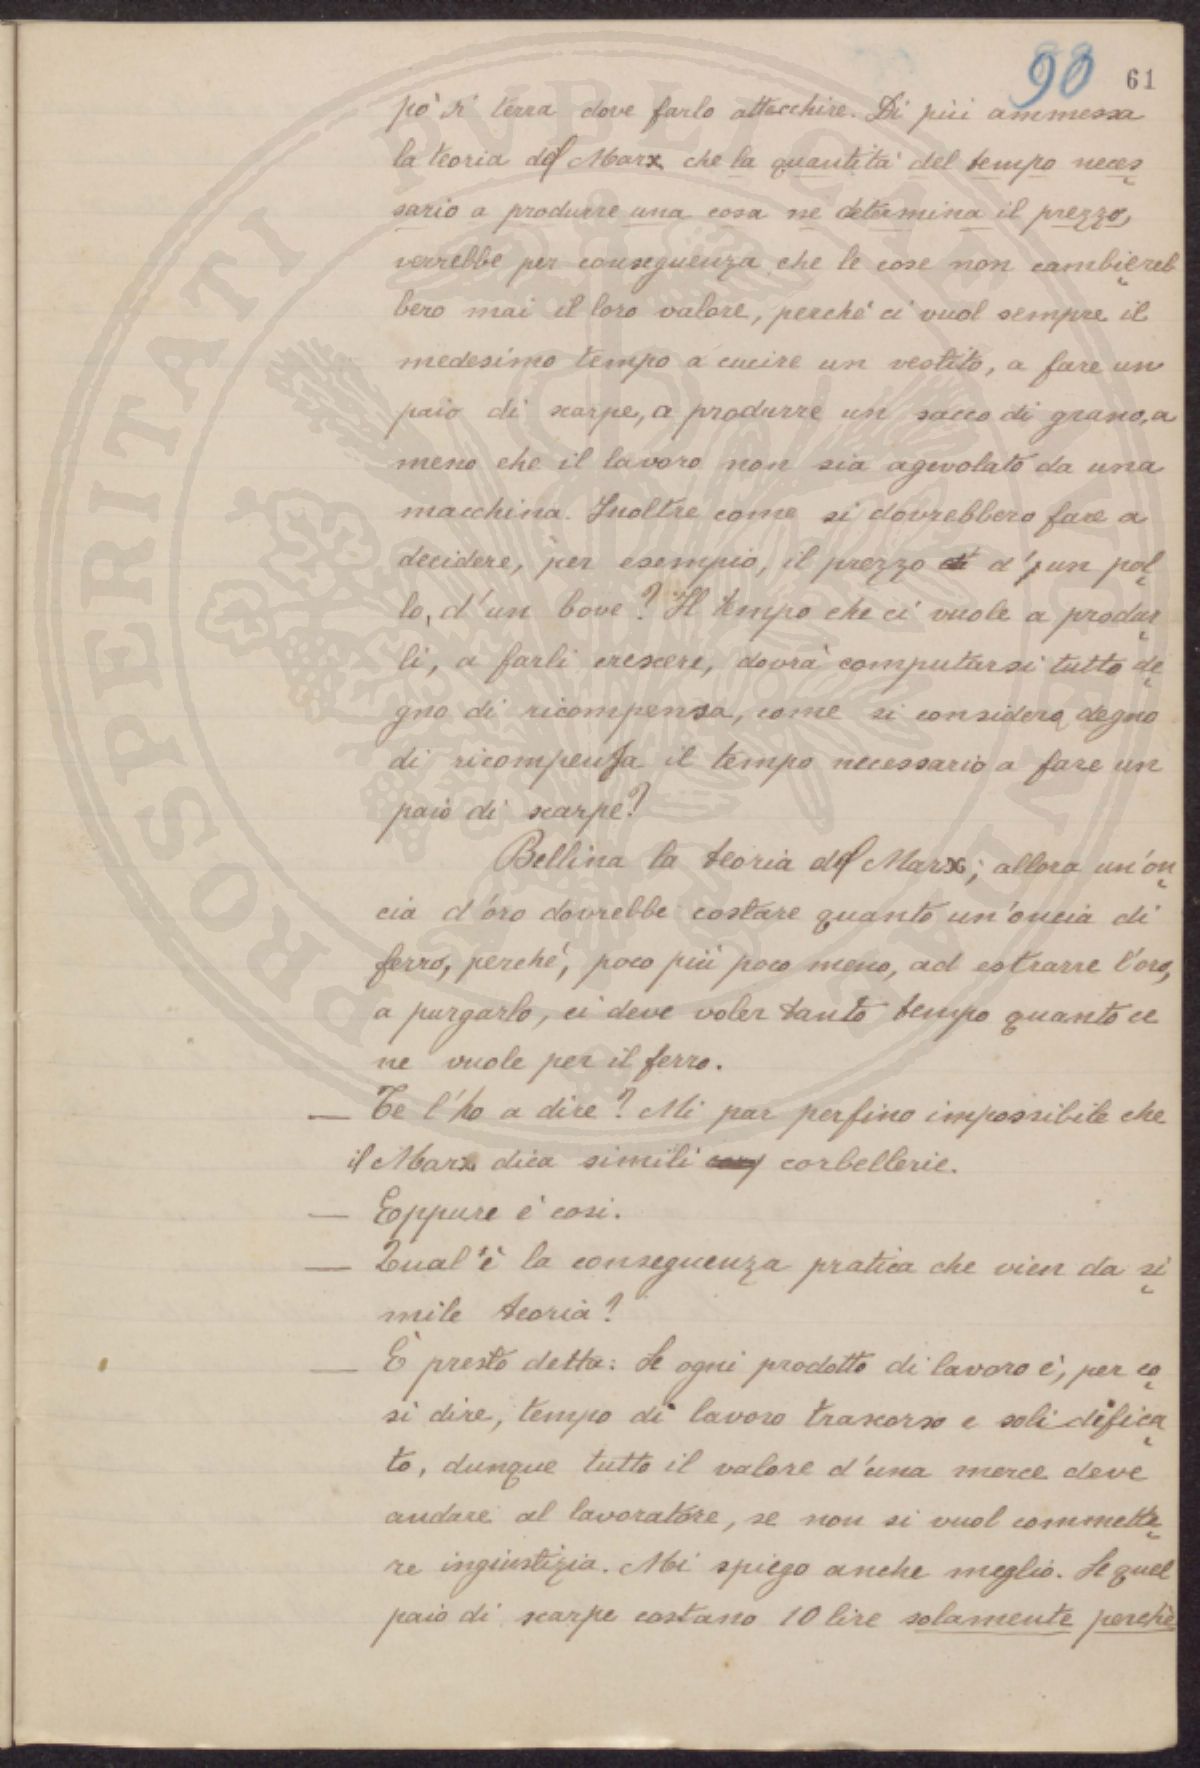 90 61
pò di terra dove farlo attecchire. Di più ammessa
la teoria del Marx che la quantità del tempo neces
sario a produrre una cosa ne determina il prezzo,
verrebbe per conseguenza che le cose non cambiereb
bero mai il loro valore, perchè ci vuol sempre il
medesimo tempo a cucire un vestito, a fare un
paio di scarpe, a produrre un sacco di grano, a
meno che il lavoro non sia agevolato da una
macchina. Inoltre come si dovrebbero fare a
decidere, per esempio, il prezzo d'un pol
lo, d'un bove? Il tempo che ci vuole a produr
li, a farli crescere, dovrà computarsi tutto de
gno di ricompensa, come si considera degno
di ricompensa il tempo necessario a fare un
paio di scarpe?
Bellina la teoria del Marx; allora un'on
cia d'oro dovrebbe costare quanto un'oncia di
ferro, perchè, poco più poco meno, ad estrarre l'oro,
a purgarlo, ci deve voler tanto tempo quanto ce
ne vuole per il ferro.
— Te l'ho a dire? Mi par perfino impossibile che
il Marx dica simili corbellerie.
— Eppure è così.
— Qual'è la conseguenza pratica che vien da si
mile teoria?
— È presto detta: Se ogni prodotto di lavoro è, per co
sì dire, tempo di lavoro trascorso e solidifica
to, dunque tutto il valore d'una merce deve
andare al lavoratore, se non si vuol commette
re ingiustizia. Mi spiego anche meglio. Se quel
paio di scarpe costano 10 lire solamente perchè
PROSPERITATI PVBLICAE